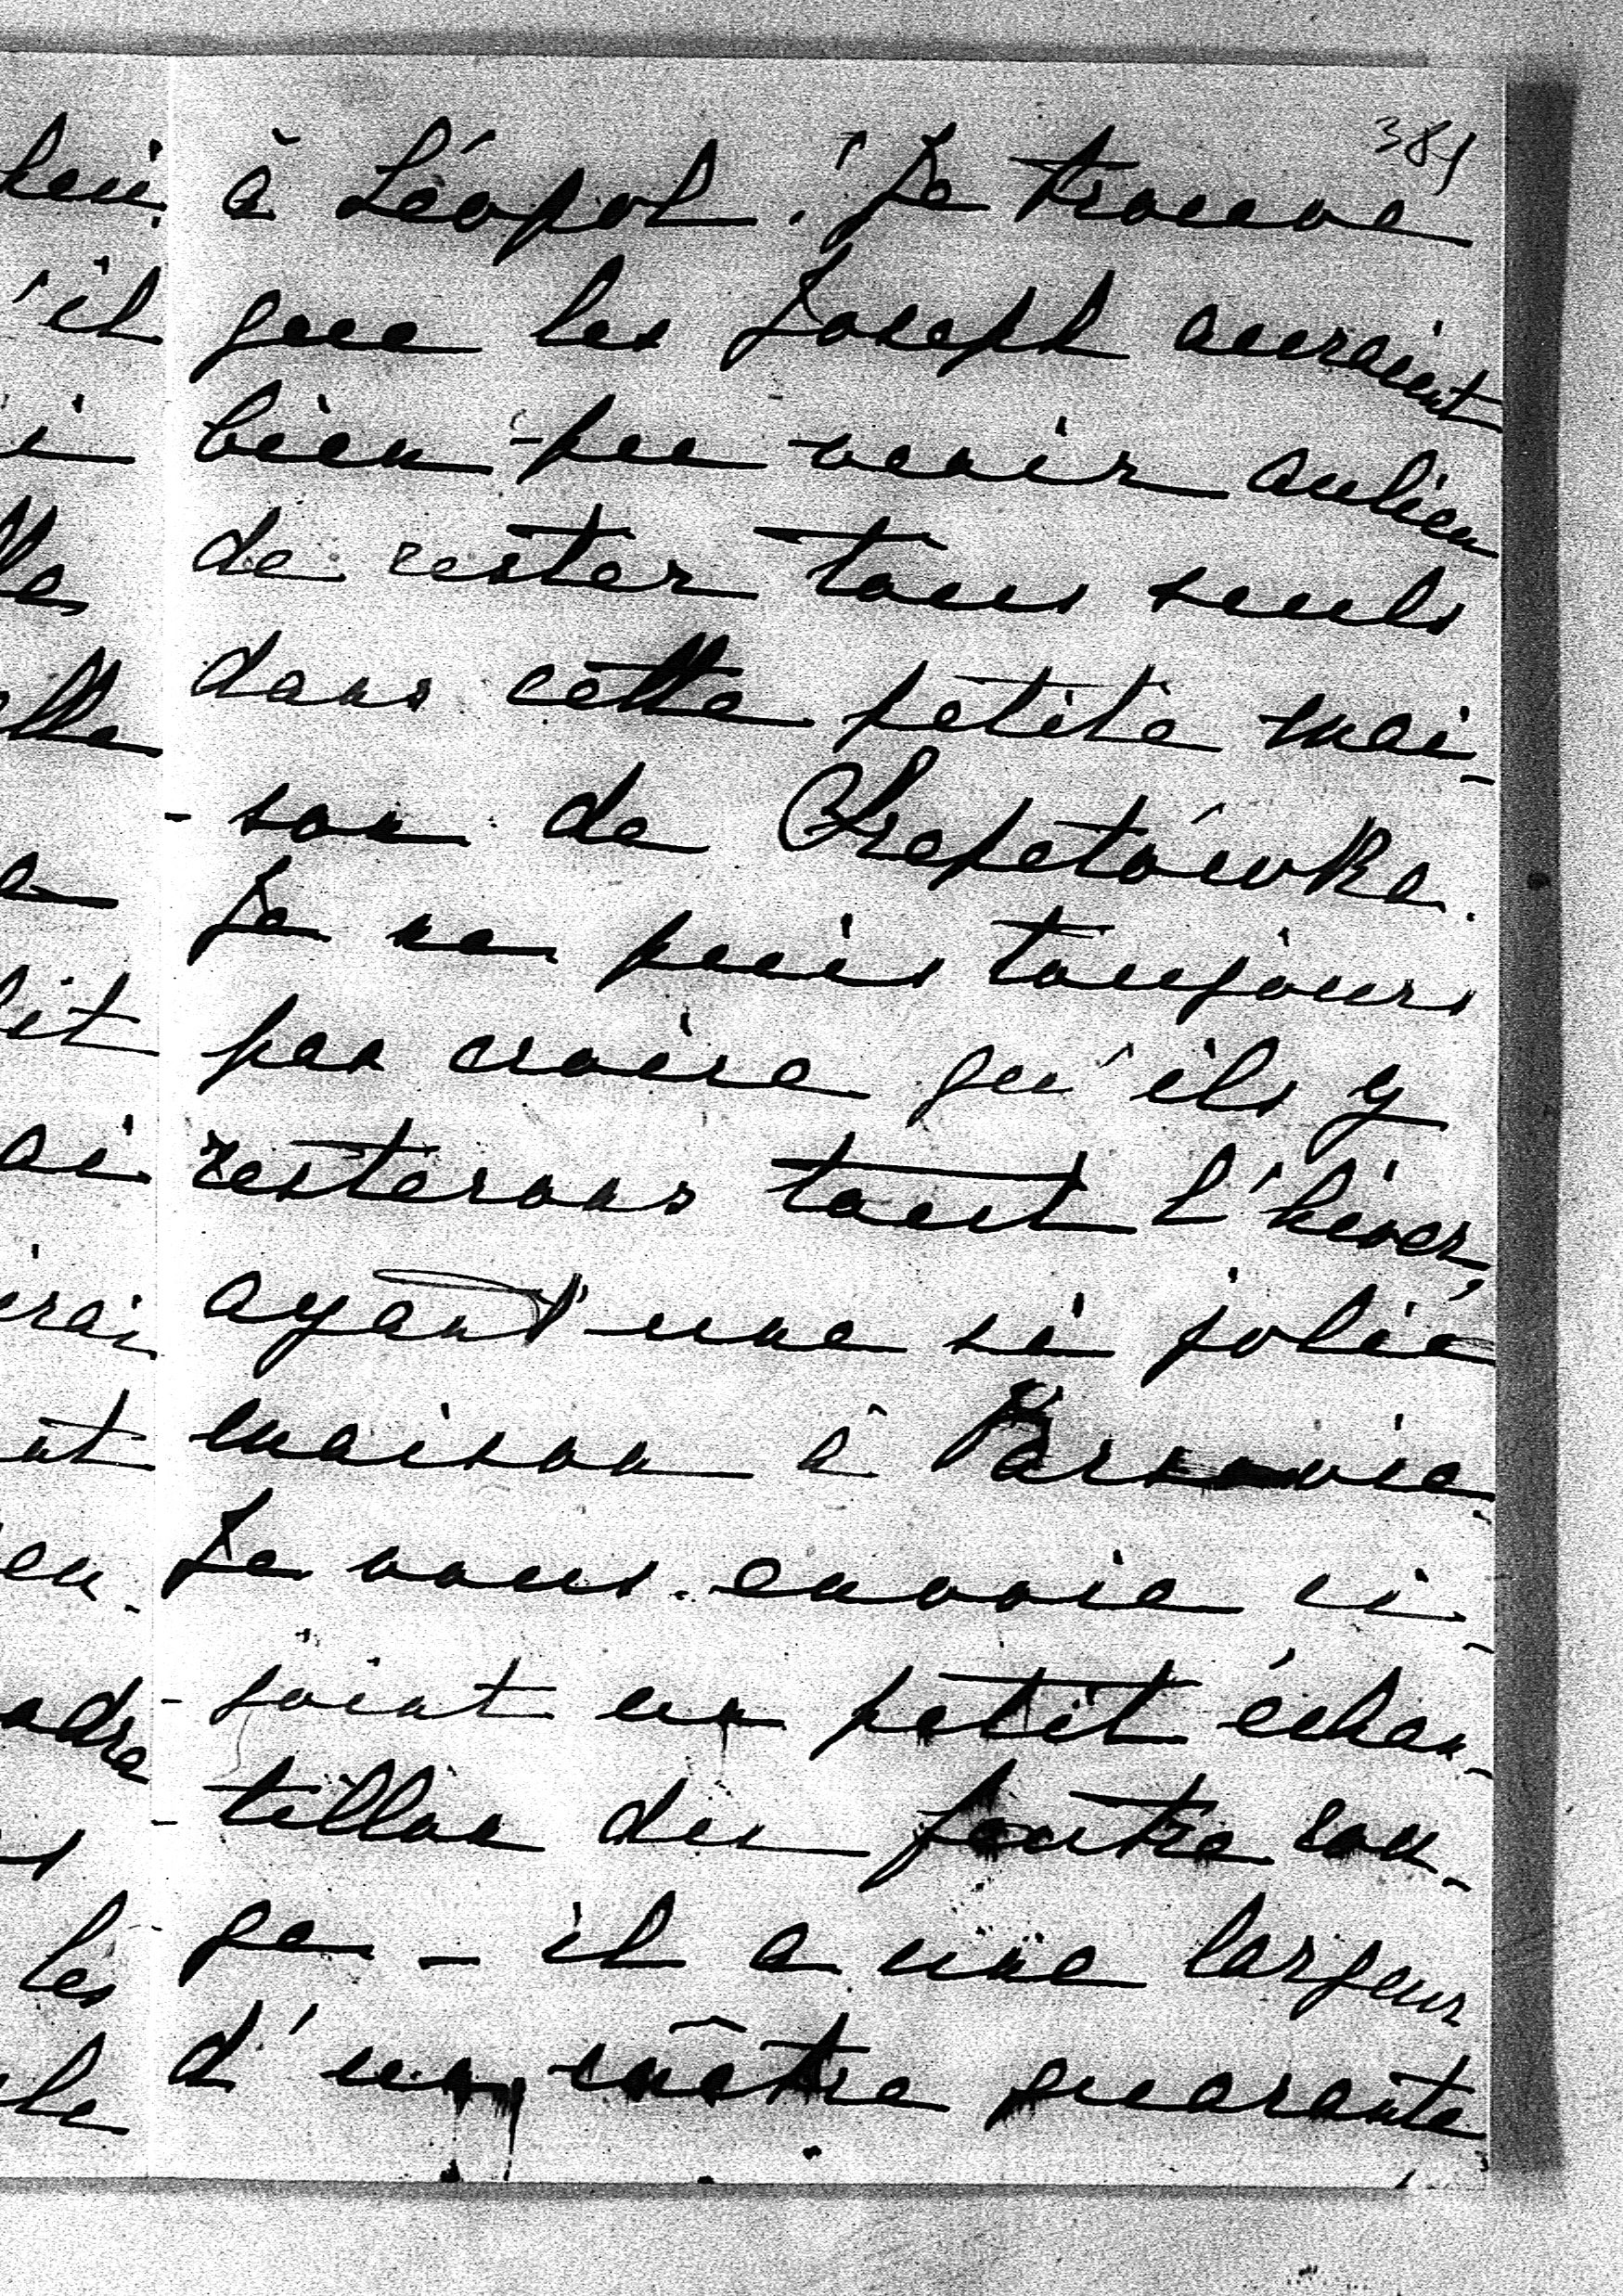 381
à Léopol. Je trouve
que les Joseph auraient
bien pu venir aulieu
de rester tous seuls
dans cette petite mai-
-son de Chepetówka.
Je ne puis toujours
pas croire qu'ils y
resterons tout l'hiver,
ayant une si jolie
maison à Varsovie.
Je vous envoie ci-
-joint un petit échan-
-tillon du feutre rou-
ge - il a une largeur
d'un mètre quarante